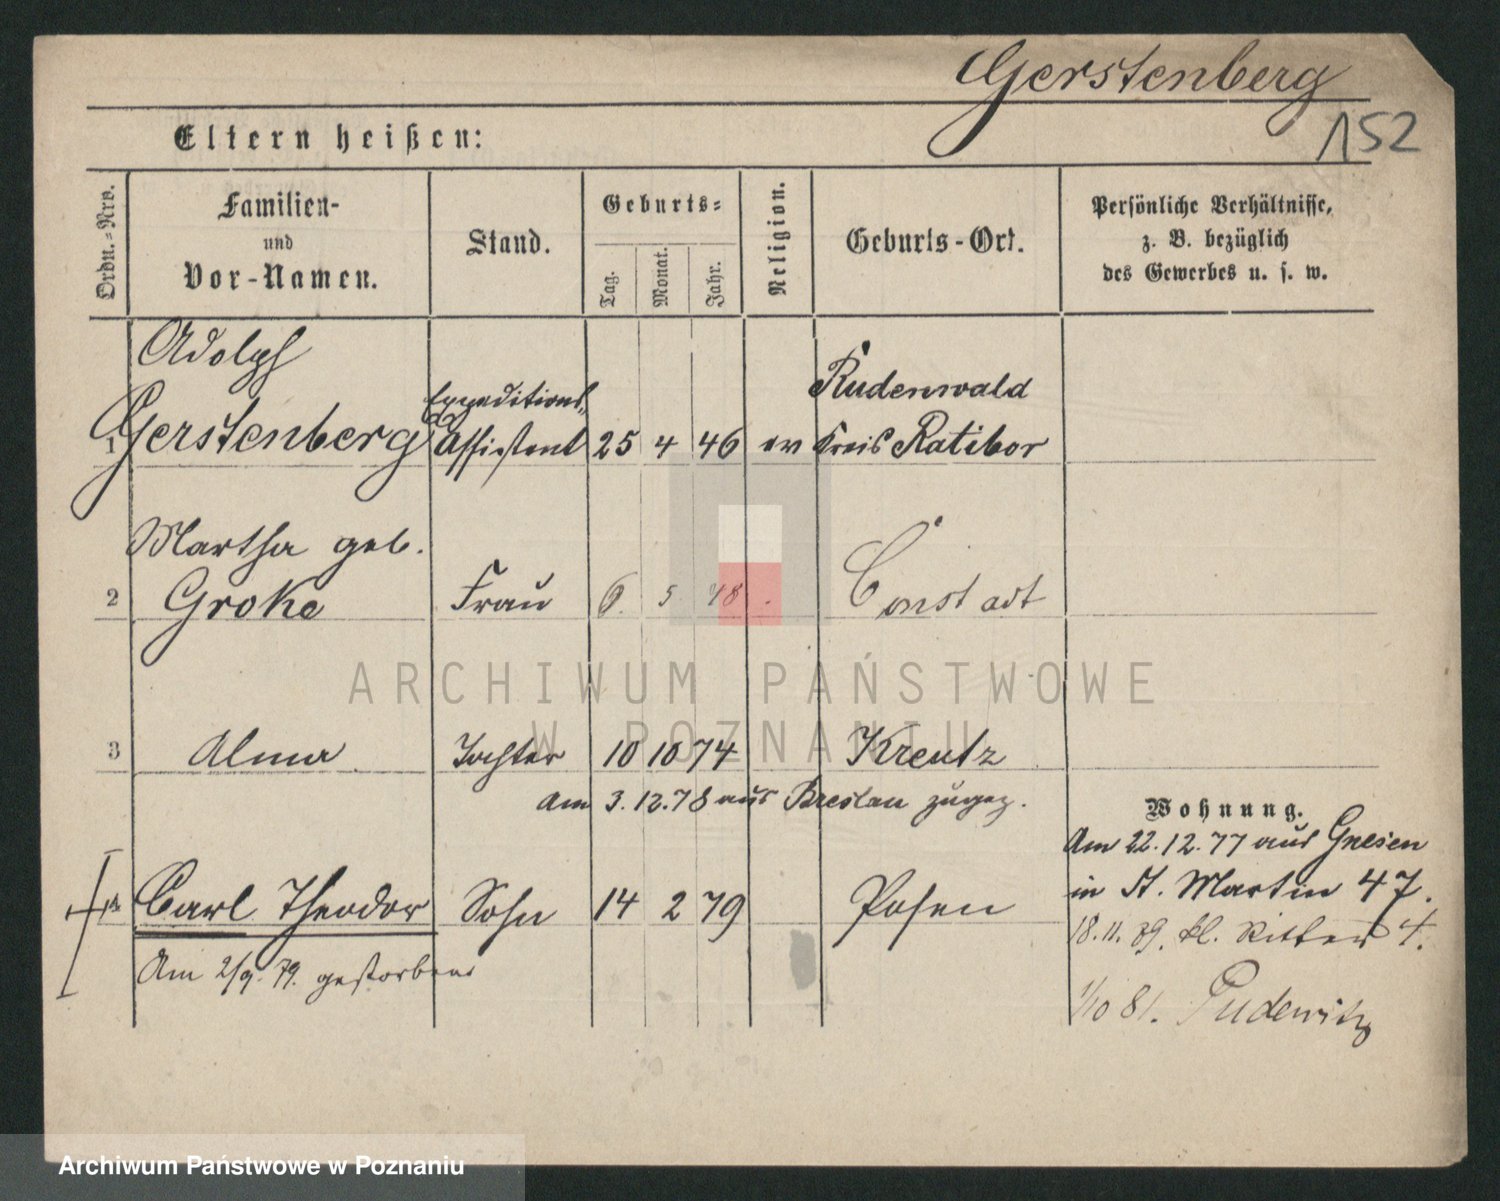 Gerstenberg
152
Eltern heißen:
Ordn.-Nro.
Familien-
und
Vor-Namen.
Stand.
Geburts-
Tag.
Monat.
Jahr.
Religion.
Geburts-Ort.
Persönliche Verhältnisse,
z. B. bezüglich
des Gewerbes u. s. w.
Adolph
Gerstenberg
Expeditions-
Assistent
1 25 4 46 ev
Rudenwald
Kreis Ratibor
Martha geb.
2 Groke Frau 6. 5 48 Constadt
ARCHIWUM PAŃSTWOWE
W POZNANIU
3 Alma Tochter 10 10 74 Kreutz
am 3.12.78 aus Breslau zugez.
Wohnung.
Am 22.12.77 aus Gnesen
in St. Martin 47.
Carl Theodor Sohn 14 2 79 Posen
18.11. 79. kl. Ritter 4.
Am 2/9. 79. gestorben
1/10 81. Pudewitz
Archiwum Państwowe w Poznaniu